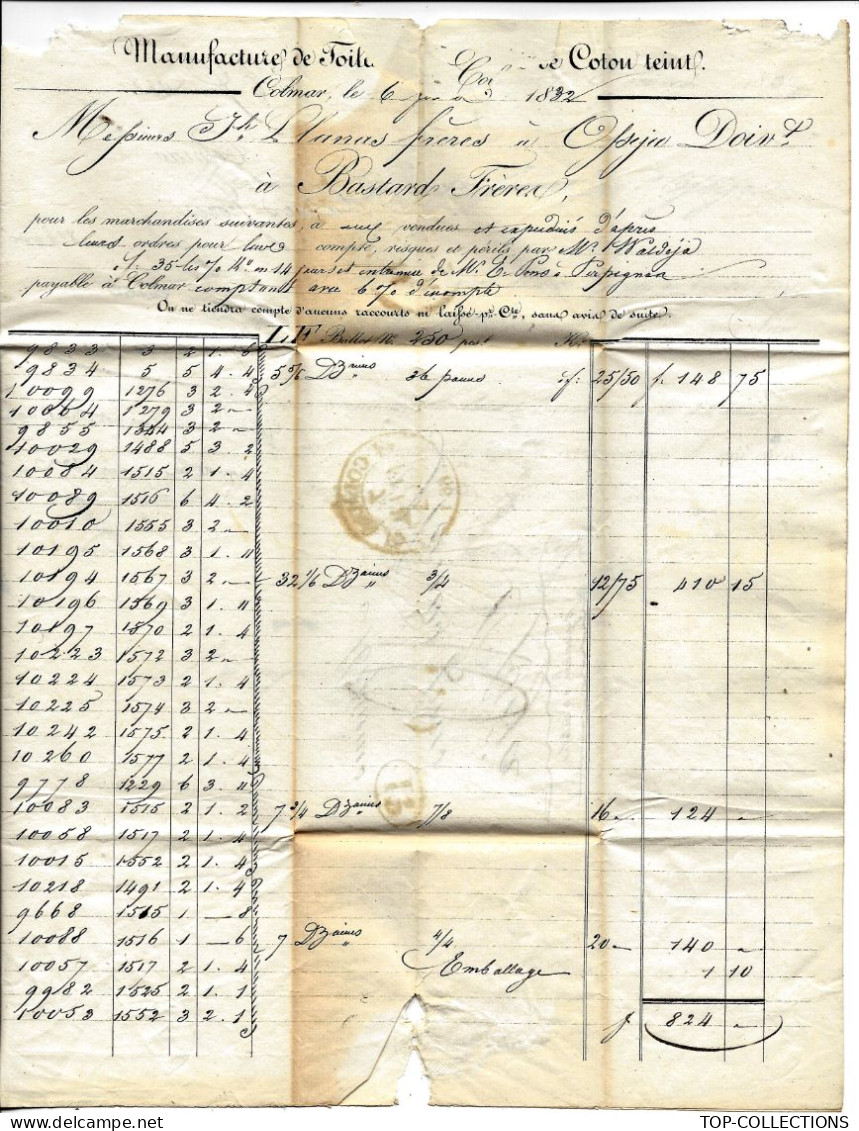 Manufacture de Toil e Coton teint.
Colmar, le 6 1832
Messieurs Jh Llunas frères à Osseja Doivt
à Bastard Frères,
pour les marchandises suivantes, à eux vendues et expediés d'après
leurs ordres pour leur compte, risques et périls par Mr. Waldéja
payable à Colmar comptant avec 6 % d'escompte
On ne tiendra compte d'aucuns raccourts ni laissé-pr. Cte, sans avis de suite.
LF Ballot No. 250 K
9833 3 2 1 . 6
9834 5 5 4 . 4 5 5/6 Dzaines 36 pouces 25/50 f. 148 75
10099 1276 3 2 . 4
10064 1279 3 2 "
9855 1344 3 2 "
10029 1488 5 3 . 2
10084 1515 2 1 . 4
10089 1516 6 4 . 2
10010 1555 3 2 "
10195 1568 3 1 . 11
10194 1567 3 2 " 32 1/6 Dzaines " 3/4 12/75 410 15
10196 1569 3 1 . 11
10197 1570 2 1 . 4
10223 1572 3 2 "
10224 1573 2 1 . 4
10225 1574 3 2 "
10242 1575 2 1 . 4
10260 1577 2 1 . 4
9778 1229 6 3 . 11
10083 1515 2 1 . 2 7 3/4 Dzaines " 7/8 16 " 124 "
10058 1517 2 1 . 4
10015 1552 2 1 . 4
10218 1491 2 1 . 4
9668 1515 1 — 8
10088 1516 1 — 6 7 Dzaines " 4/4 20 " 140 "
10057 1517 2 1 . 4 Emballage 1 10
9982 1525 2 1 . 1
10053 1552 3 2 . 1 f 824 "
TOP-COLLECTIONS